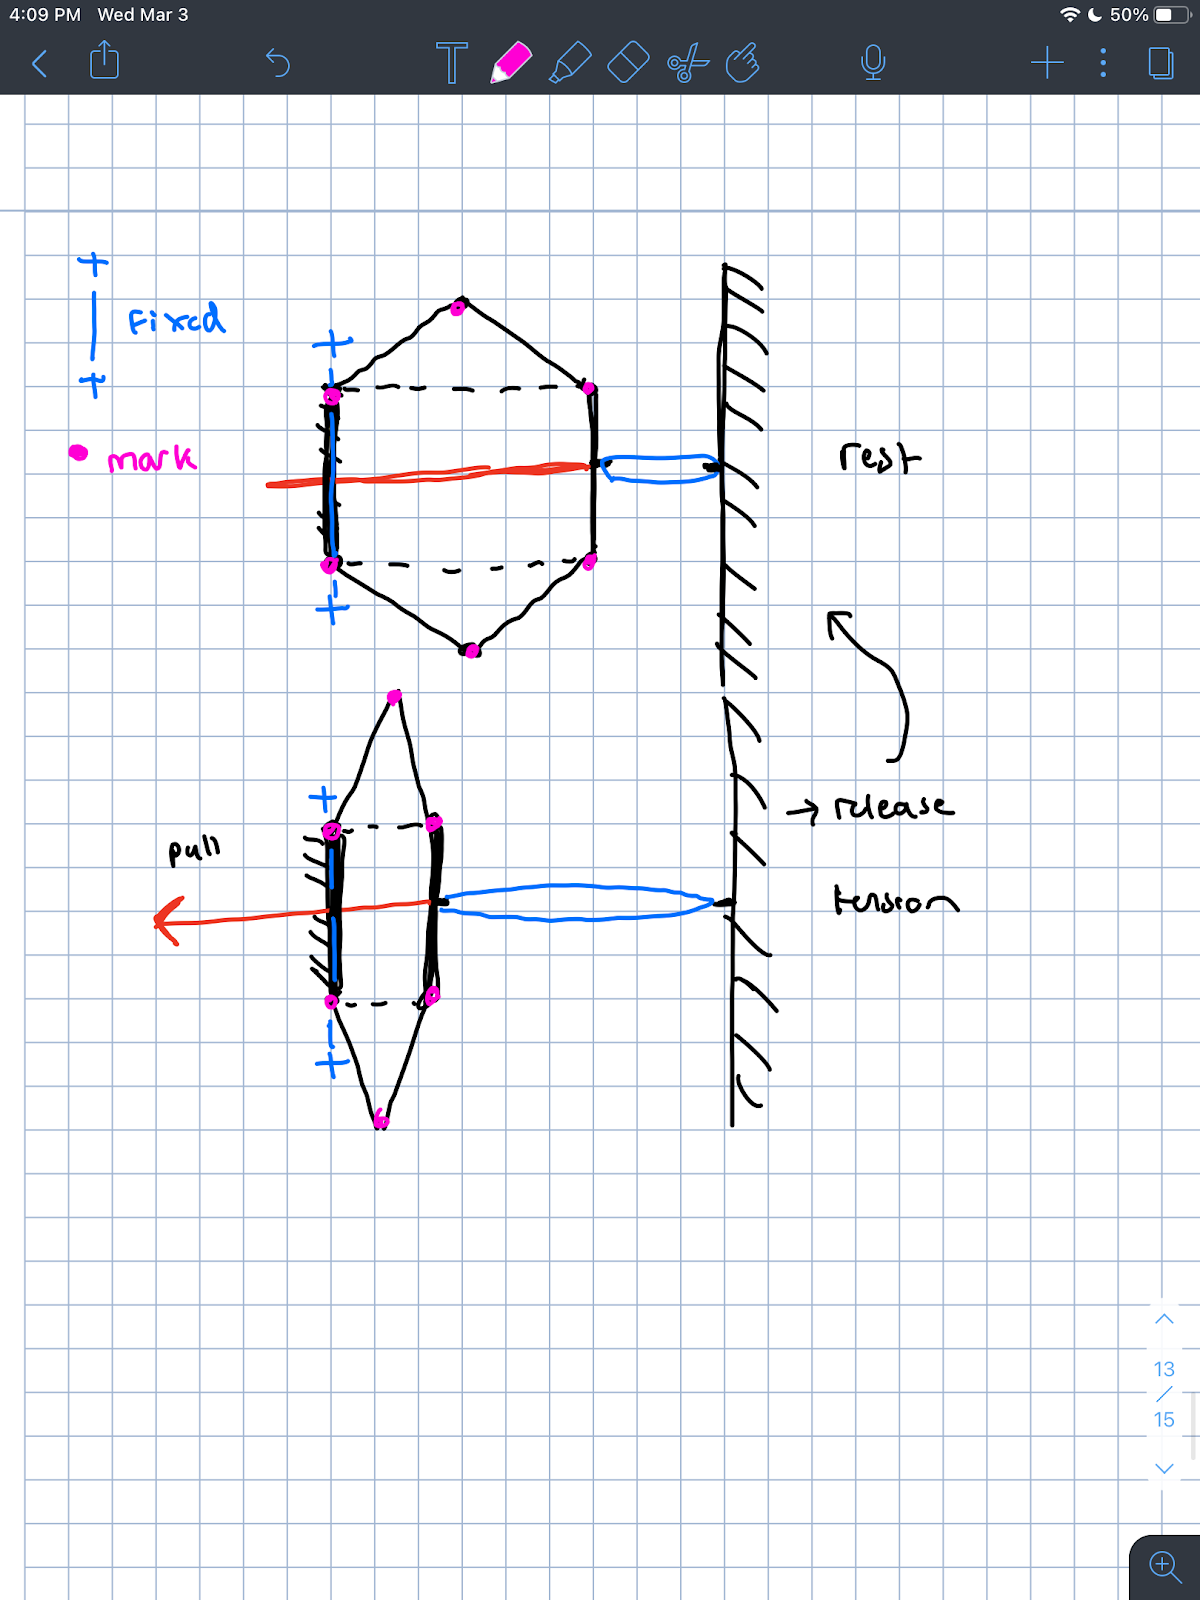 4:09 PM Wed Mar 3
50%
T
Fixed
mark
rest
pull
→ release
tension
13
/
15